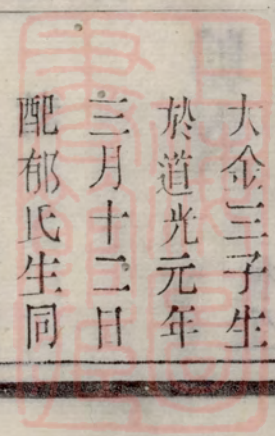 大金三子生
於道光元年
三月十二日
配郁氏生同